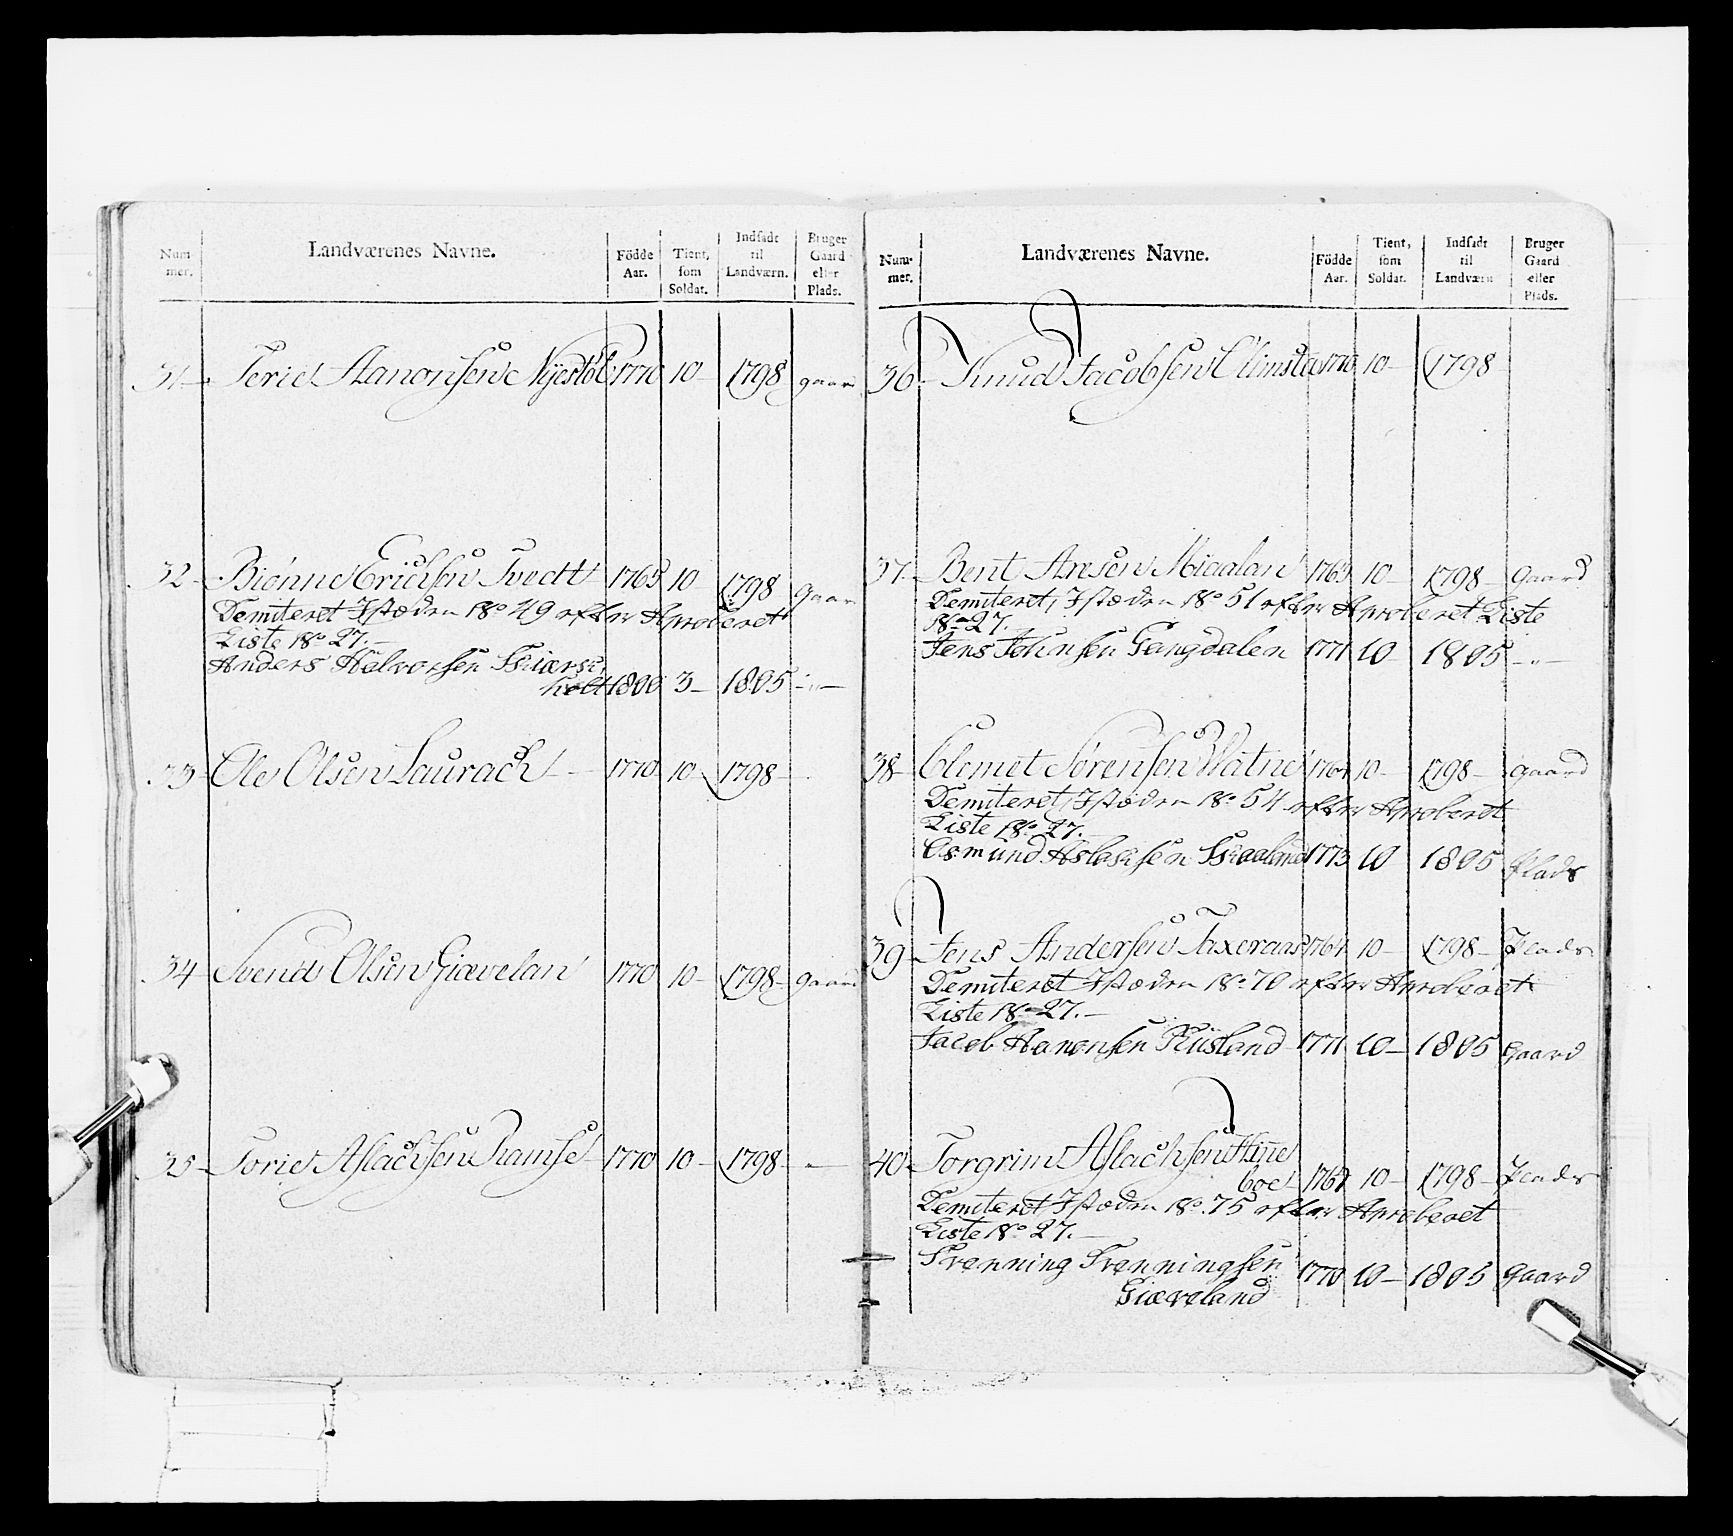 Num-
mer.
Landværenes Navne.
Födde
Aar.
Tient,
som
Soldat.
Indsadt
til
Landværn.
Bruger
Gaard
eller
Plads.
31 Terie Aanonsen Nyestöl 1770 10 1798 gaar
32 Biönne Erichsen Tvedt 1765 10 1798 gaar
Demiteret Istæden No 49 efter Aproberet
Liste No 27.
Anders Halvorsen Skiærs
holt 1800 3 1805 - " -
33 Ole Olsen Laurach 1770 10 1798
34 Svend Olsen Giævelan 1770 10 1798 gaard
35 Torie Aslachsen Ramse 1770 10 1798 -
Num-
mer.
Landværenes Navne.
Födde
Aar.
Tient,
som
Soldat.
Indsadt
til
Landværn
Bruger
Gaard
eller
Plads.
36 Knud Jacobsen Olimsta 1770 10 1798
37 Bent Aresen Miaalan 1765 10 1798 Gaard
Demiteret, Istæden No 51 efter Aproberet Liste
No 27.
Jens Johnsen Gangdalen 1771 10 1805 - " -
38 Clemet Sörensen Watne 1764 10 1798 gaard
Demiteret, Istæden No 54 efter Aproberet
Liste No 27.
Osmund Aslaksen Skaaland 1773 10 1805 Plads
39 Jens Andersen Taxeraas 1764 10 1798 Plads
Demiteret Istæden No 70 efter Aproberet
Liste No 27.
Jacob Hanonsen Riisland 1771 10 1805 Gaard
40 Torgrim Aslachsen Hinne
boe 1767 10 1798 Plads
Demiteret Istæden No. 75 efter Aproberet
Liste No 27.
Trenning Trenningsen 1770 10 1805 Gaard
Giæveland